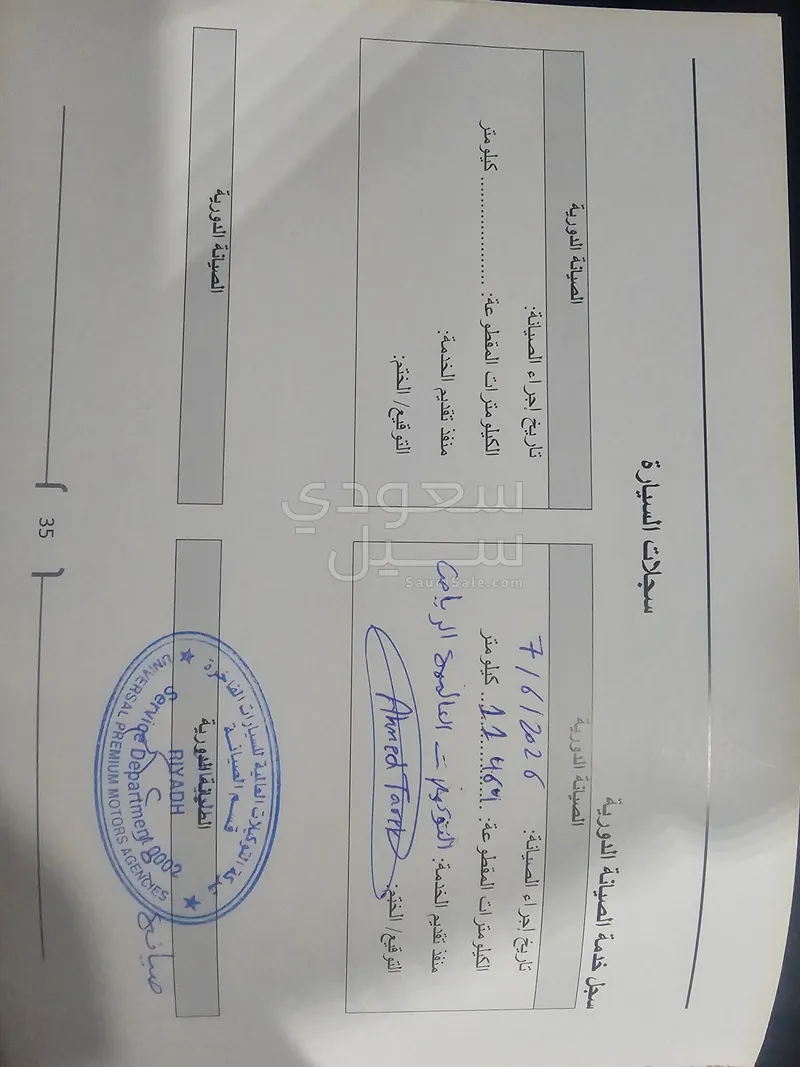 سجلات السيارة
سجل خدمة الصيانة الدورية
الصيانة الدورية
تاريخ إجراء الصيانة: 7/6/2026
الكيلومترات المقطوعة: كيلو متر
منفذ تقديم الخدمة: التوكيلات العالمية الرياض
التوقيع/ الختم: Ahmed Tarek
الصيانة الدورية
تاريخ إجراء الصيانة:
الكيلومترات المقطوعة: ..................... كيلو متر
منفذ تقديم الخدمة:
التوقيع/ الختم:
الصيانة الدورية
شركة التوكيلات العالمية للسيارات الفاخرة
قسم الصيانة
RIYADH
Service Department
UNIVERSAL PREMIUM MOTORS AGENCIES
الصيانة الدورية
35
سعودي سيل
SaudiSale.com